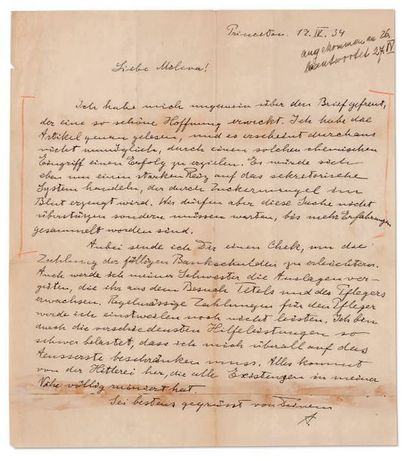 Princeton. 12. IV. 34
angekommen am 26.
beantwortet 27. IV
Liebe Mileva!
Ich habe mich ungemein über den Brief gefreut,
der eine so schöne Hoffnung erweckt. Ich habe die
Artikel genau gelesen, und es erscheint durchaus
nicht unmöglich, durch einen solchen chemischen
Eingriff einen Erfolg zu erzielen. Es würde sich
eben um einen starken Reiz auf das sekretorische
System handeln, der durch Zuckermangel im
Blut erzeugt wird. Wir dürfen aber diese Sache nicht
überstürzen sondern müssen warten, bis mehr Erfahrungen
gesammelt worden sind.
Anbei sende ich Dir einen Check, um die
Zahlung der fälligen Bankschulden zu erleichtern.
Auch werde ich meiner Schwester die Auslagen ver-
güten, die ihr aus dem Besuche Tetels und des Pflegers
erwachsen. Regelmässige Zahlungen für den Pfleger
werde ich einstweilen noch nicht leisten. Ich bin
durch die verschiedensten Hilfeleistungen so
schwer belastet, dass ich mich überall auf das
Aeusserste beschränken muss. Alles kommt
von der Hitlerei her, die alle Existenzen in meiner
Nähe völlig ruiniert hat
Sei bestens gegrüsst von Deinem
A